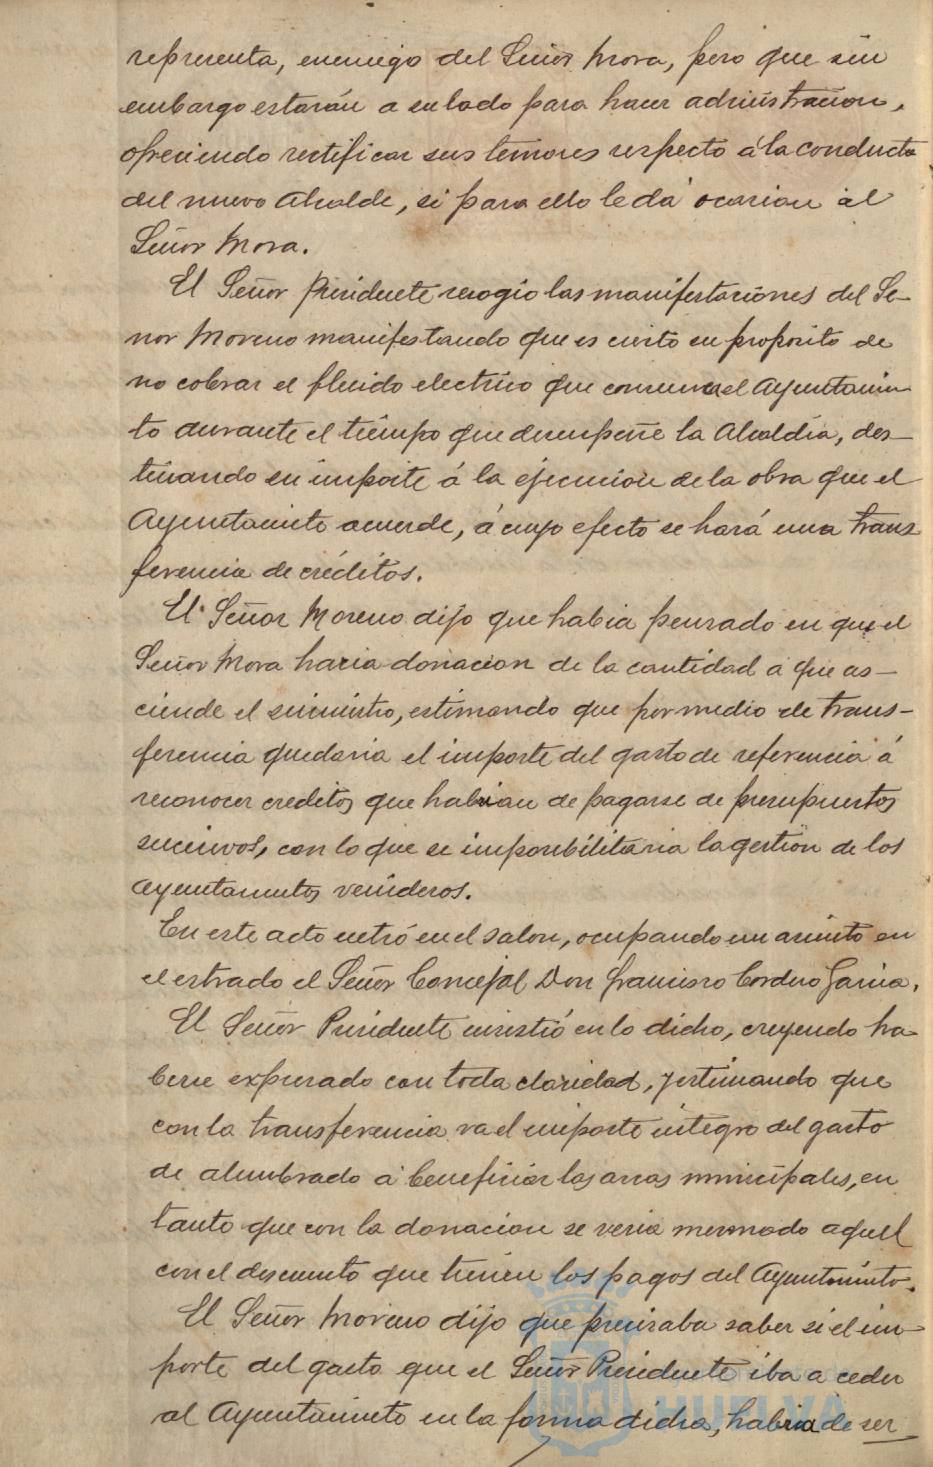 representa, enemigo del Señor Mora, pero que sin
embargo estarán a su lado para hacer administracion,
ofreciendo rectificar sus temores respecto á la conducta
del nuevo Alcalde, si para ello le dá ocasion el
Señor Mora.
El Señor Presidente recogio las manifestaciones del Se-
ñor Moreno manifestando que es cierto su proposito de
no cobrar el fluido electrico que consuma el Ayuntamien-
to durante el tiempo que desempeñe la Alcaldia, des-
tinando su importe á la ejecucion de la obra que el
Ayuntamiento acuerde, á cuyo efecto se hará una trans
ferencia de créditos.
El Señor Moreno dijo que habia pensado en que el
Señor Mora haria donacion de la cantidad a que as-
ciende el suministro, estimando que por medio de trans-
ferencia quedaria el importe del gasto de referencia á
reconocer creditos que habrian de pagarse de presupuestos
sucesivos, con lo que se imposibilitaria la gestion de los
Ayuntamientos venideros.
En este acto entró en el salon, ocupando un asiento en
el estrado el Señor Concejal Don Francisco Cordero Garcia.
El Señor Presidente insistió en lo dicho, creyendo ha-
berse expresado con toda claridad, y estimando que
con la transferencia va el importe integro del gasto
de alumbrado a beneficiar las arcas municipales, en
tanto que con la donacion se veria mermado aquel
con el descuento que tienen los pagos del Ayuntamiento.
El Señor Moreno dijo que precisaba saber si el im-
porte del gasto que el Señor Presidente iba a ceder
al Ayuntamiento en la forma dicha, habria de ser
HUELVA